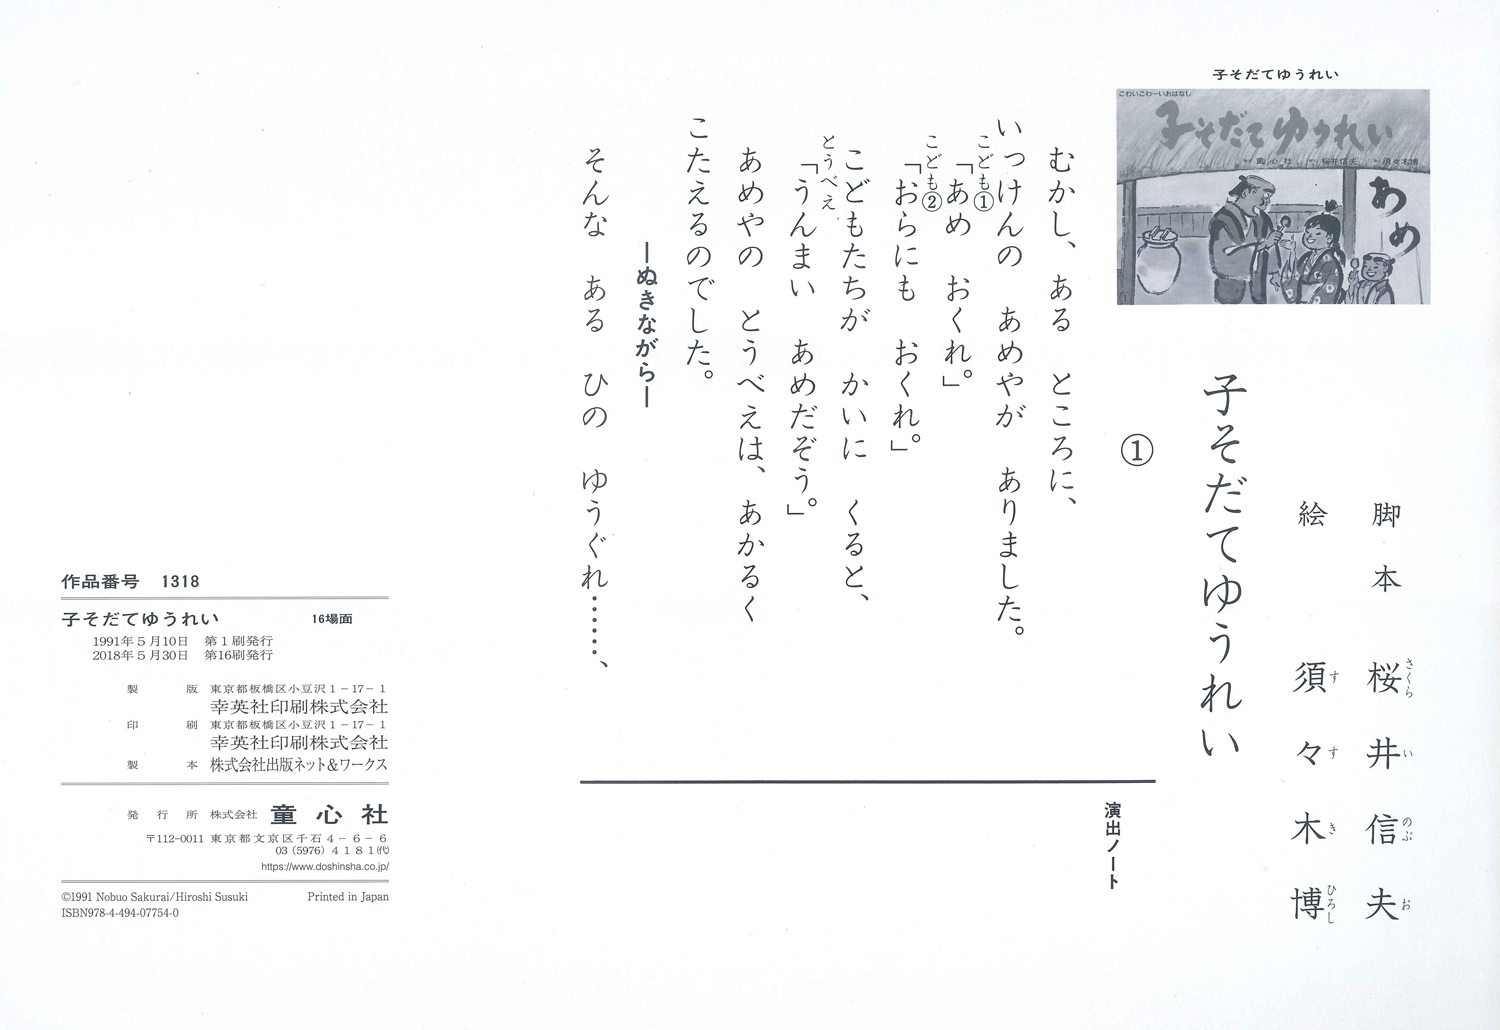 子そだてゆうれい
こわいこわーいおはなし
子そだてゆうれい
童心社
桜井信夫
須々木博
あめ
脚本 桜井信夫
さくら い のぶ お
絵 須々木博
す す き ひろし
子そだてゆうれい
①
むかし、ある ところに、
いっけんの あめやが ありました。
こども①
「あめ おくれ。」
こども②
「おらにも おくれ。」
こどもたちが かいに くると、
とうべえ
「うんまい あめだぞう。」
あめやの とうべえは、あかるく
こたえるのでした。
―ぬきながら―
そんな ある ひの ゆうぐれ……、
演出ノート
作品番号 1318
子そだてゆうれい 16場面
1991年5月10日 第1刷発行
2018年5月30日 第16刷発行
製版 東京都板橋区小豆沢1-17-1
幸英社印刷株式会社
印刷 東京都板橋区小豆沢1-17-1
幸英社印刷株式会社
製本 株式会社出版ネット&ワークス
発行所 株式会社 童心社
〒112-0011 東京都文京区千石4-6-6
03(5976)4181(代)
https://www.doshinsha.co.jp/
©1991 Nobuo Sakurai/Hiroshi Susuki Printed in Japan
ISBN978-4-494-07754-0